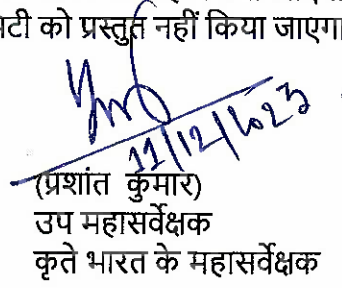 मटी को प्रस्तुत नहीं किया जाएगा
11/12/2023
(प्रशांत कुमार)
उप महासर्वेक्षक
कृते भारत के महासर्वेक्षक